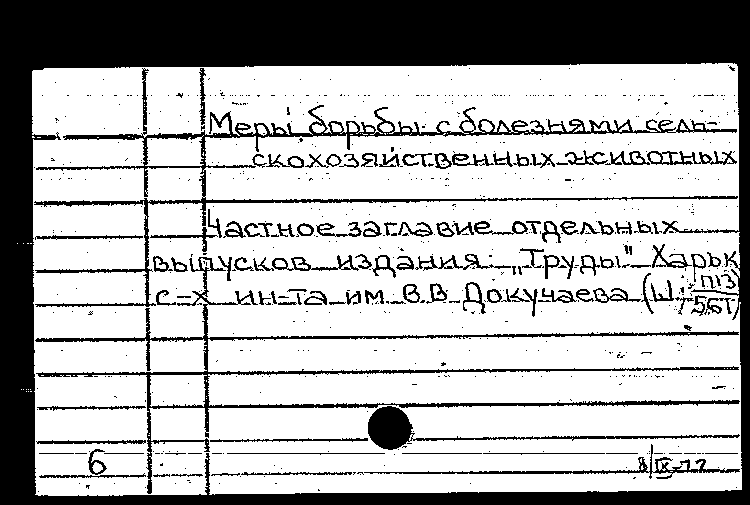 Меры борьбы с болезнями сель-
скохозяйственных животных
Частное заглавие отдельных
выпусков издания: „Труды" Харьк
с-х ин-та им В.В Докучаева (Ш: П13/561)
6
8/IX-77